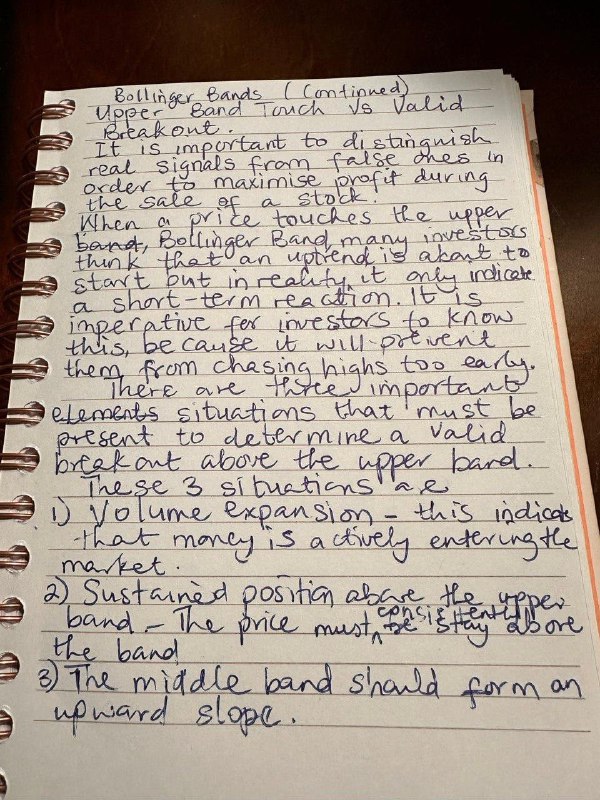 Bollinger Bands (Continued)
Upper Band Touch Vs Valid
Breakout.
It is important to distinguish
real signals from false ones in
order to maximise profit during
the sale of a stock.
When a price touches the upper
band, Bollinger Band, many investors
think that an uptrend is about to
start but in reality it only indicate
a short-term reaction. It is
imperative for investors to know
this, because it will prevent
them from chasing highs too early.
There are three important
elements situations that must be
present to determine a valid
breakout above the upper band.
These 3 situations are
1) Volume expansion - this indicates
that money is actively entering the
market.
2) Sustained position above the upper
band - The price must consistently be stay above
the band
3) The middle band should form an
upward slope.